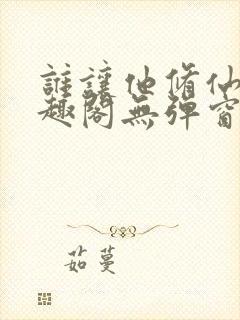 誰讓他脩仙
趣閣無彈窗
茹蔓